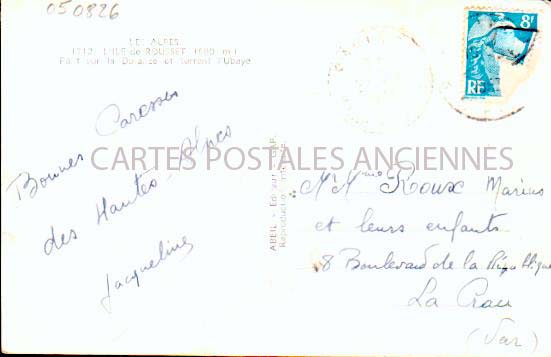 050826
LES ALPES
1712. L'ILE de ROUSSET (680 m.)
Pont sur la Durance et torrent l'Ubaye
Bonnes Caresses
des Hautes-Alpes
Jacqueline
CARTES POSTALES ANCIENNES
ABEIL - Editeur - GAP
Reproduction interdite
8F
RF
M. Mme Roux Marius
et leurs enfants
8 Boulevard de la République
La Crau
(Var)